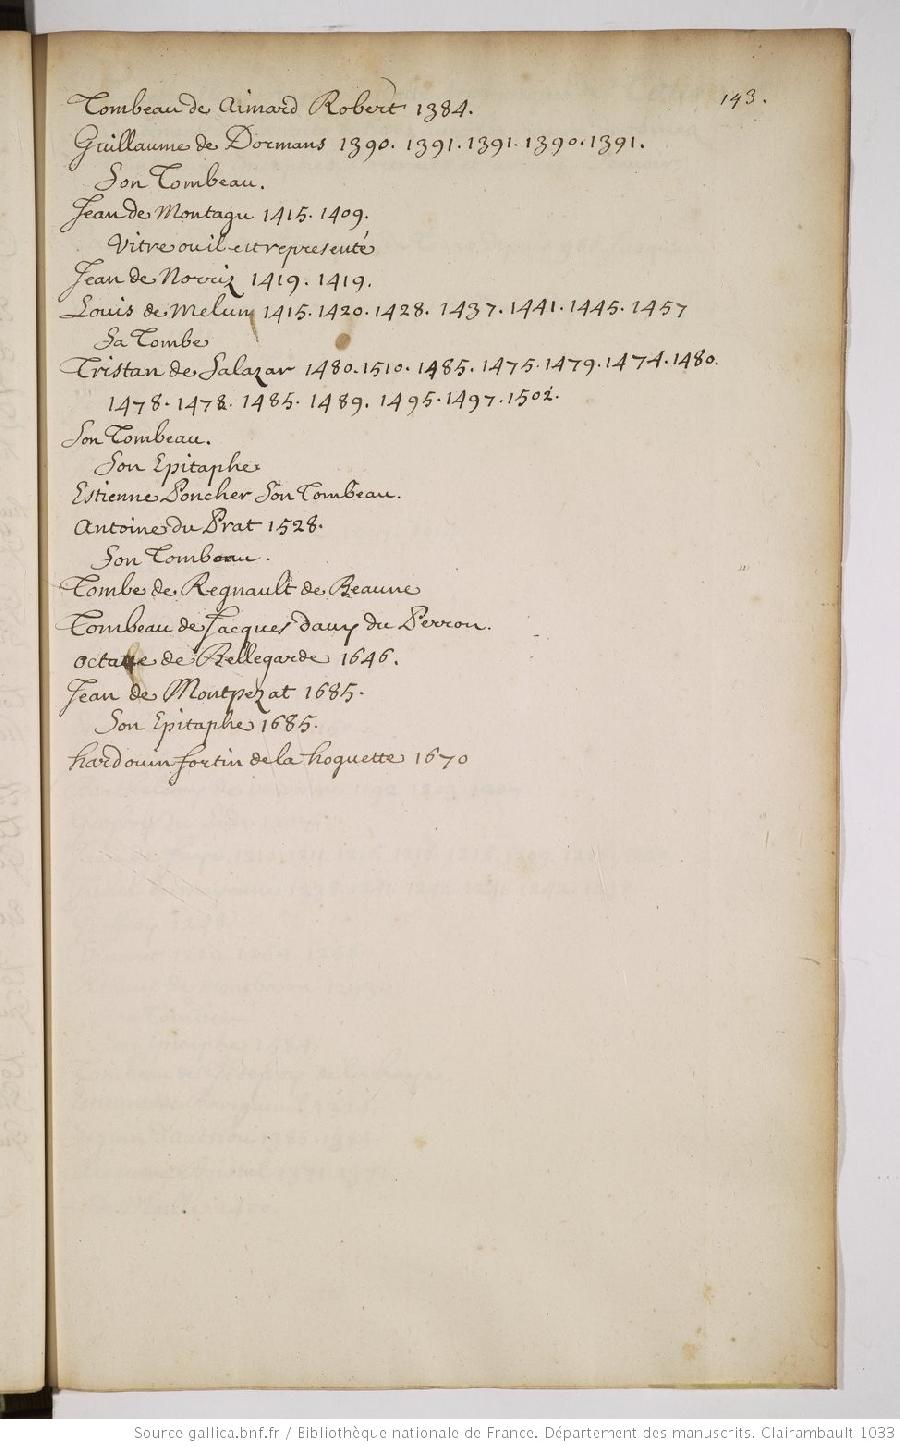 143.
Tombeau de Aimard Robert 1384.
Guillaume de Dormans 1390. 1391. 1391. 1390. 1391.
Son Tombeau.
Jean de Montagu 1415. 1409.
Vitre ou il est representé
Jean de Norriz 1419. 1419.
Louis de Melun 1415. 1420. 1428. 1437. 1441. 1445. 1457
Sa Tombe
Tristan de Salazar 1480. 1510. 1485. 1475. 1479. 1474. 1480.
1478. 1478. 1485. 1489. 1495. 1497. 1502.
Son Tombeau.
Son Epitaphe
Estienne Poncher Son Tombeau.
Antoine du Prat 1528.
Son Tombeau.
Tombe de Regnault de Beaune
Tombeau de Jacques Davy du Perron.
octave de Bellegarde 1646.
Jean de Montpezat 1685.
Son Epitaphe 1685.
hardouin fortin de la hoguette 1670
Source gallica.bnf.fr / Bibliothèque nationale de France. Département des manuscrits. Clairambault 1033